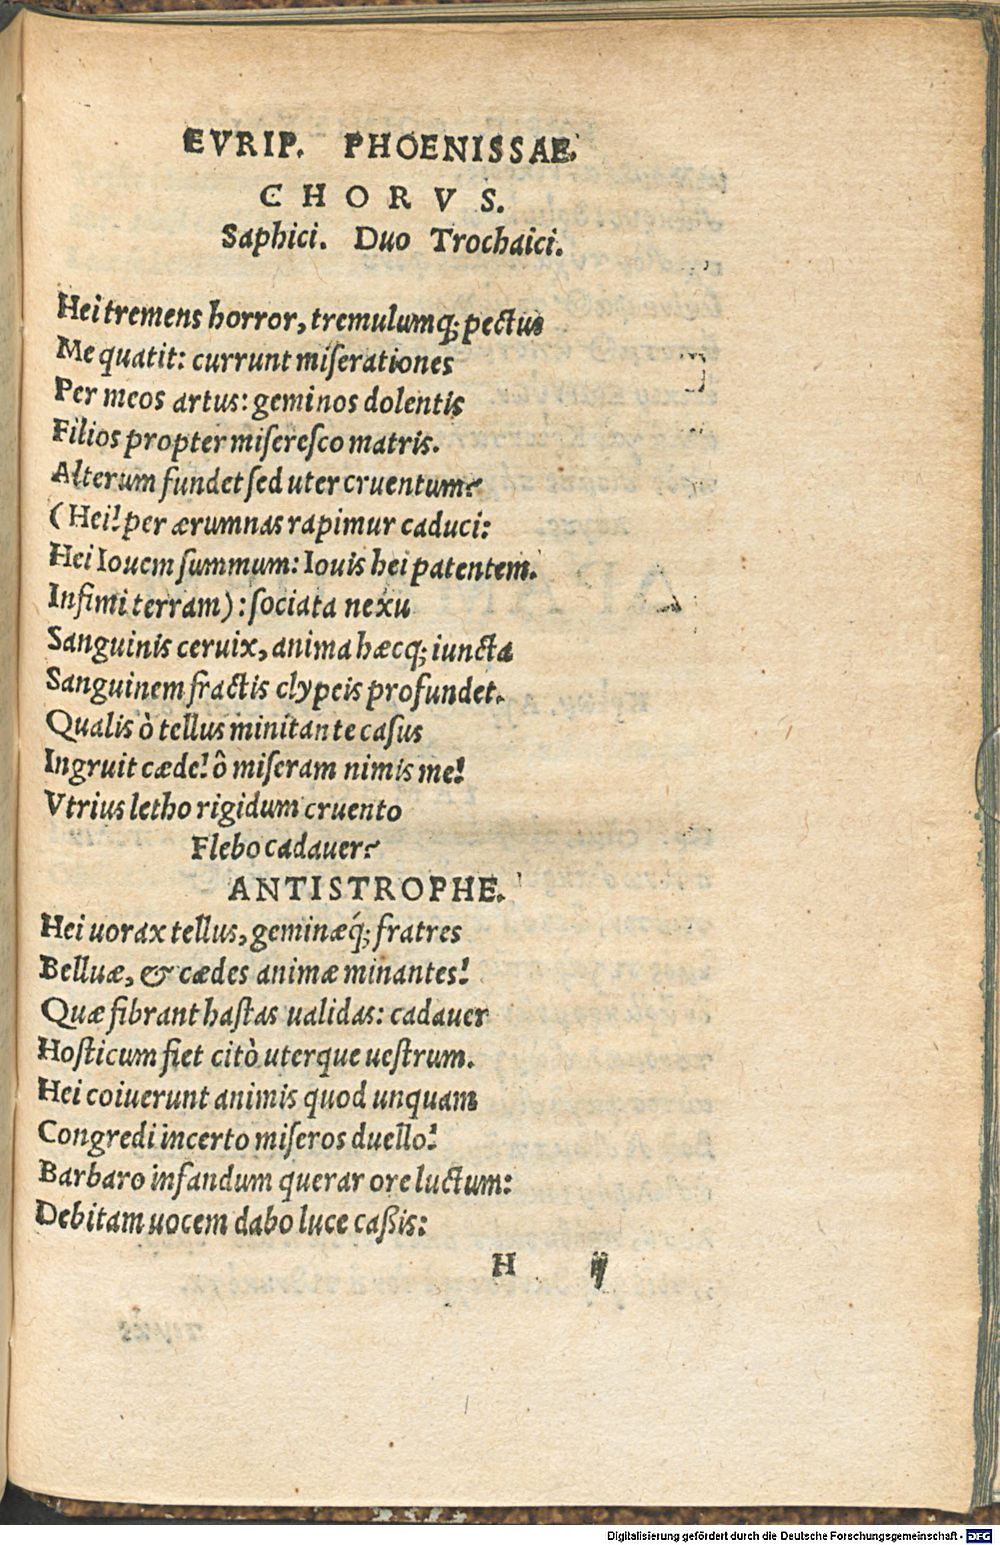 EVRIP. PHOENISSAE.
CHORVS.
Saphici. Duo Trochaici.
Hei tremens horror, tremulumq; pectus
Me quatit: currunt miſerationes
Per meos artus: geminos dolentis
Filios propter miſereſco matris.
Alterum fundet ſed uter cruentum?
(Hei! per ærumnas rapimur caduci:
Hei Iouem ſummum: Iouis hei patentem.
Infimi terram): ſociata nexu
Sanguinis ceruix, anima hæcq; iuncta
Sanguinem fractis clypeis profundet.
Qualis ò tellus minitante caſus
Ingruit cæde! ô miſeram nimis me!
Vtrius letho rigidum cruento
Flebo cadauer?
ANTISTROPHE.
Hei uorax tellus, geminæq́; fratres
Belluæ, & cædes animæ minantes!
Quæ fibrant haſtas ualidas: cadauer
Hoſticum fiet citò uterque ueſtrum.
Hei coiuerunt animis quod unquam
Congredi incerto miſeros duello!
Barbaro infandum querar ore luctum:
Debitam uocem dabo luce caßis:
H ij
Digitalisierung gefördert durch die Deutsche Forschungsgemeinschaft - DFG